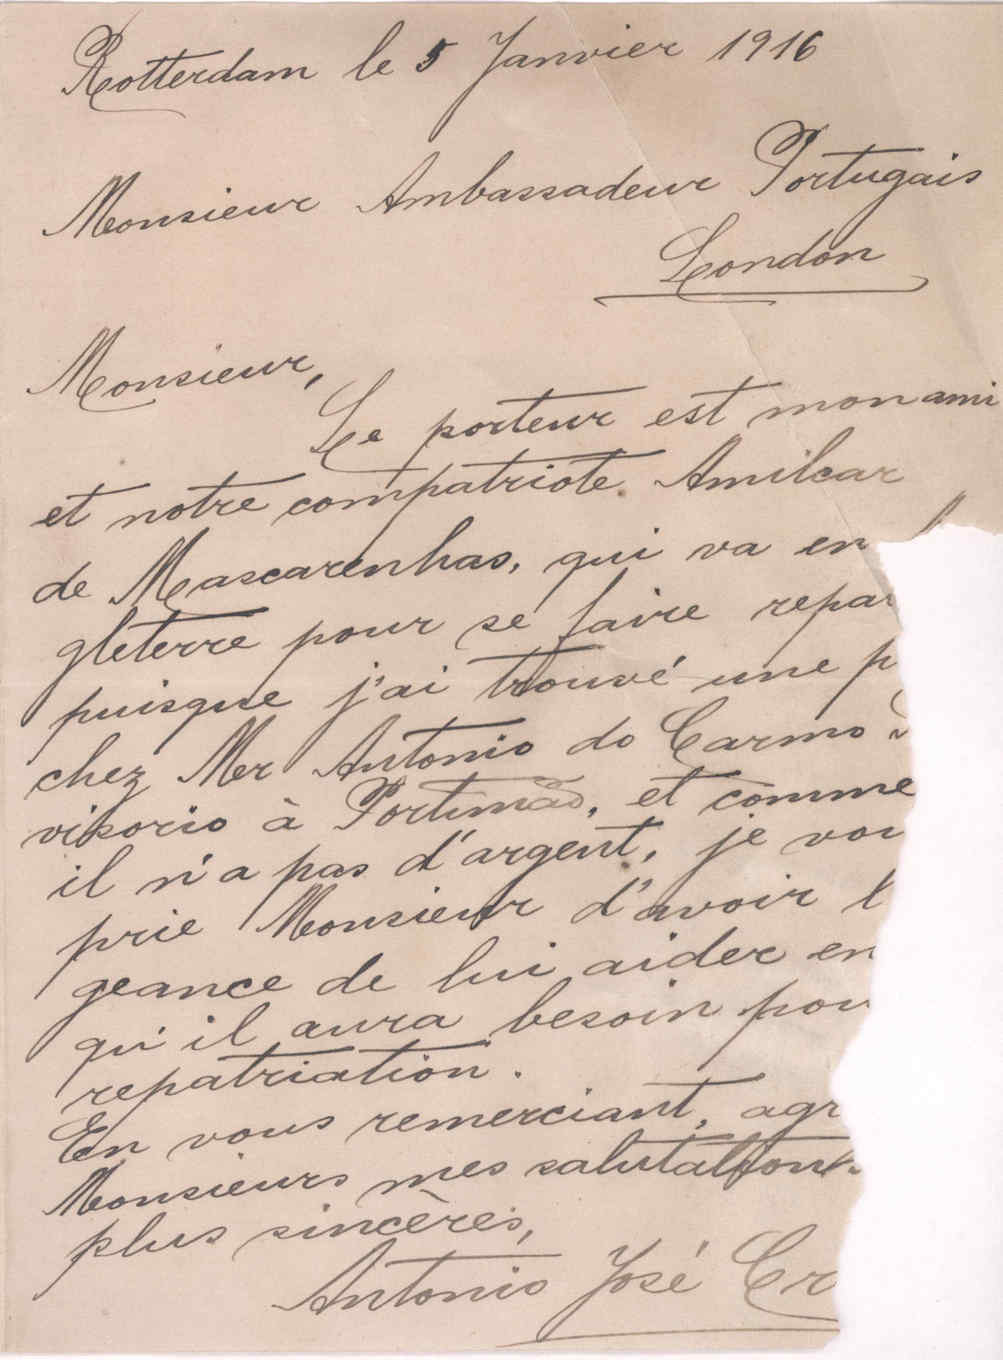 Rotterdam le 5 Janvier 1916
Monsieur Ambassadeur Portugais
London
Monsieur,
Le porteur est mon ami
et notre compatriote Amilcar
de Mascarenhas, qui va en
gleterre pour se faire repa
puisque j'ai trouvé une p
chez Mer Antonio do Carmo
visorio à Portimão, et comme
il n'a pas d'argent, je vou
prie Monsieur d'avoir l
geance de lui aider en
qu'il aura besoin pou
repatriation.
En vous remerciant, agr
Monsieurs mes salutations
plus sincères,
Antonio José Cr